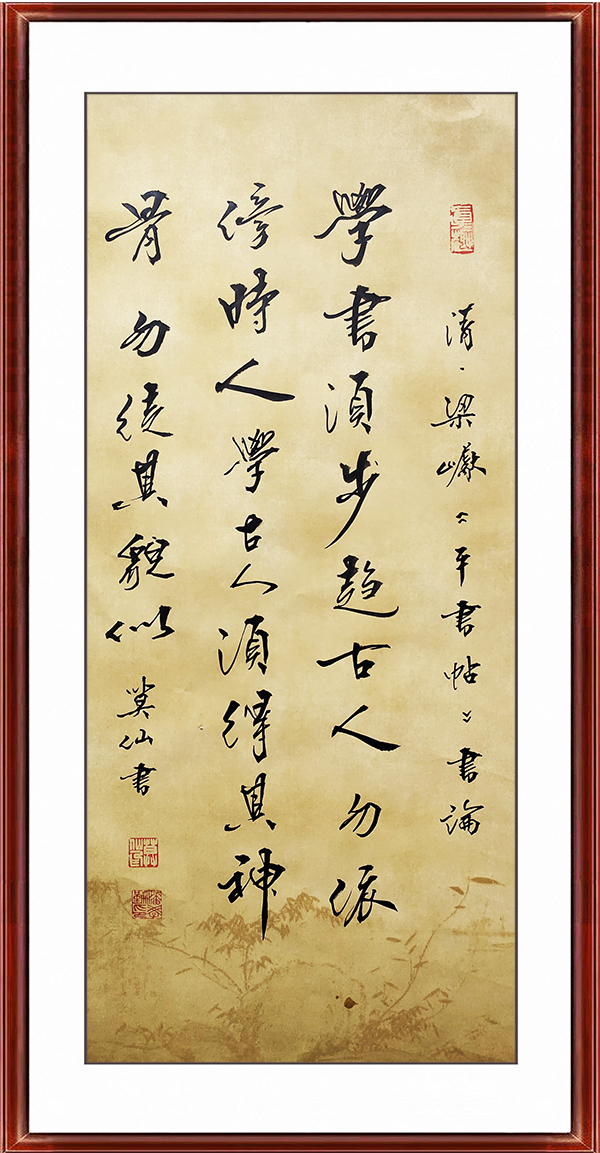 清·梁巘《平書帖》書論
學書須步趨古人勿依
傍時人學古人須得其神
骨勿徒其貌似
莫仙書